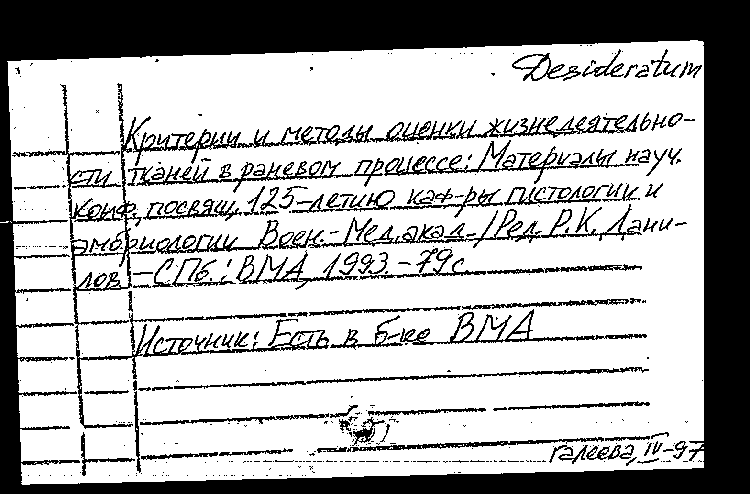 Desideratum
Критерии и методы оценки жизнедеятельно-
сти тканей в раневом процессе: Материалы науч.
конф., посвящ. 125-летию каф-ры гистологии и
эмбриологии Воен.-Мед. акад. / Ред. Р.К. Дани-
лов. – СПб.: ВМА, 1993. – 79 с.
Источник: Есть в б-ке ВМА
Галеева, IV-97